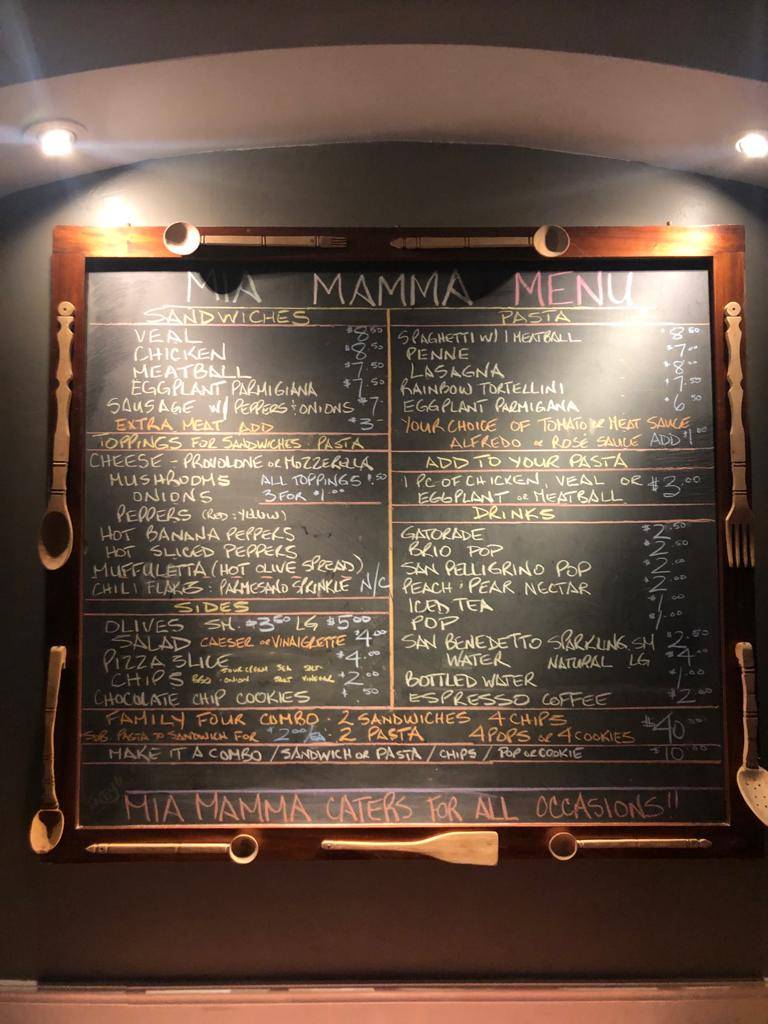 MIA MAMMA MENU
SANDWICHES
VEAL $8.50
CHICKEN $8.50
MEATBALL $7.50
EGGPLANT PARMIGIANA $7.50
SAUSAGE W/ PEPPERS & ONIONS $7.
EXTRA MEAT ADD $3-
TOPPINGS FOR SANDWICHES & PASTA
CHEESE - PROVOLONE OR MOZZERELLA
MUSHROOMS ALL TOPPINGS $.50
ONIONS 3 FOR $1.00
PEPPERS (RED & YELLOW)
HOT BANANA PEPPERS
HOT SLICED PEPPERS
MUFFULETTA (HOT OLIVE SPREAD)
CHILI FLAKES & PARMESAN SPRINKLE N/C
SIDES
OLIVES SM. $3.50 LG $5.00
SALAD CAESER OR VINAIGRETTE $4.00
PIZZA SLICE $4.
CHIPS BBQ SOUR CREAM & ONION SEA SALT SALT & VINEGAR $2.00
CHOCOLATE CHIP COOKIES $.50
PASTA
SPAGHETTI W/ 1 MEATBALL $8.50
PENNE $7.
LASAGNA $8.
RAINBOW TORTELLINI $7.50
EGGPLANT PARMIGANA $6.
YOUR CHOICE OF TOMATO OR MEAT SAUCE
ALFREDO OR ROSÉ SAUCE ADD $1.00
ADD TO YOUR PASTA
1 PC OF CHICKEN, VEAL OR
EGGPLANT OR MEATBALL $3.00
DRINKS
GATORADE $2.50
BRIO POP $2.
SAN PELLIGRINO POP $2.
PEACH & PEAR NECTAR $2.
ICED TEA $1.
POP $1.
SAN BENEDETTO SPARKLING SM $2.50
WATER NATURAL LG $4.
BOTTLED WATER $1.
ESPRESSO COFFEE $2.
FAMILY FOUR COMBO - 2 SANDWICHES 4 CHIPS $40.
SUB PASTA TO SANDWICH FOR $2.00/EA 2 PASTA 4 POPS OR 4 COOKIES
MAKE IT A COMBO / SANDWICH OR PASTA / CHIPS / POP OR COOKIE $10.
MIA MAMMA CATERS FOR ALL OCCASIONS!!